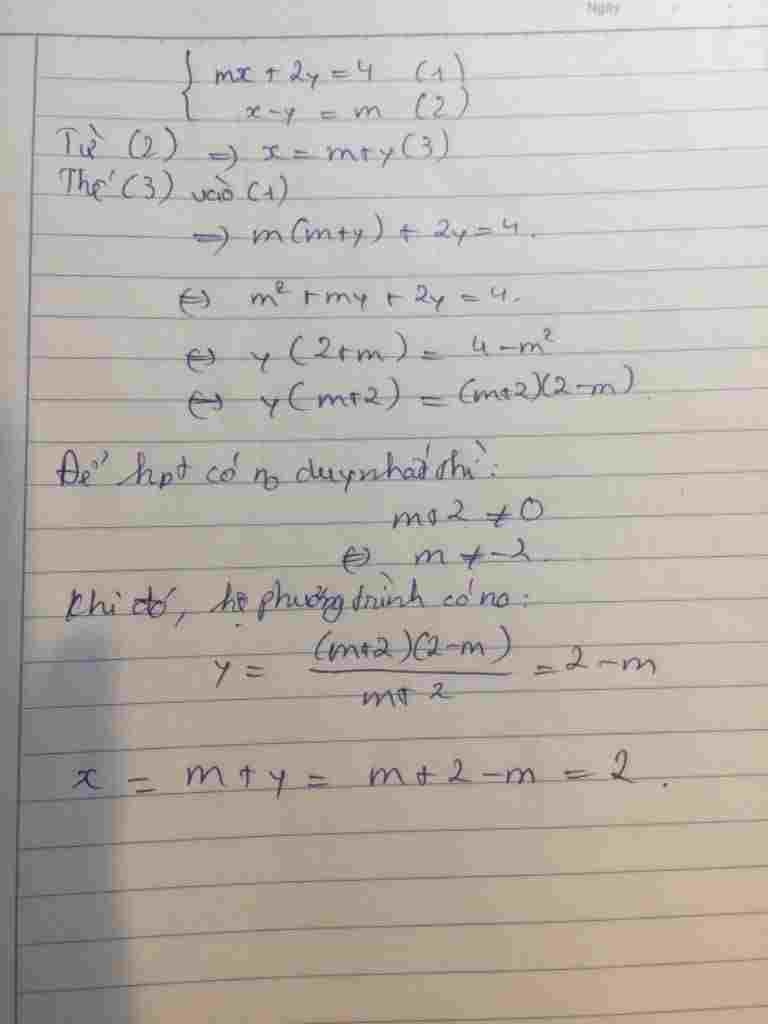 Ngày
{ mx + 2y = 4 (1)
x - y = m (2)
Từ (2) => x = m+y (3)
Thế (3) vào (1)
=> m(m+y) + 2y = 4.
<=> m² + my + 2y = 4.
<=> y (2+m) = 4 - m²
<=> y (m+2) = (m+2)(2-m).
Để hpt có no duy nhất thì:
m+2 ≠ 0
<=> m ≠ -2.
Khi đó, hệ phương trình có no:
y = (m+2)(2-m) / m+2 = 2 - m
x = m + y = m + 2 - m = 2.